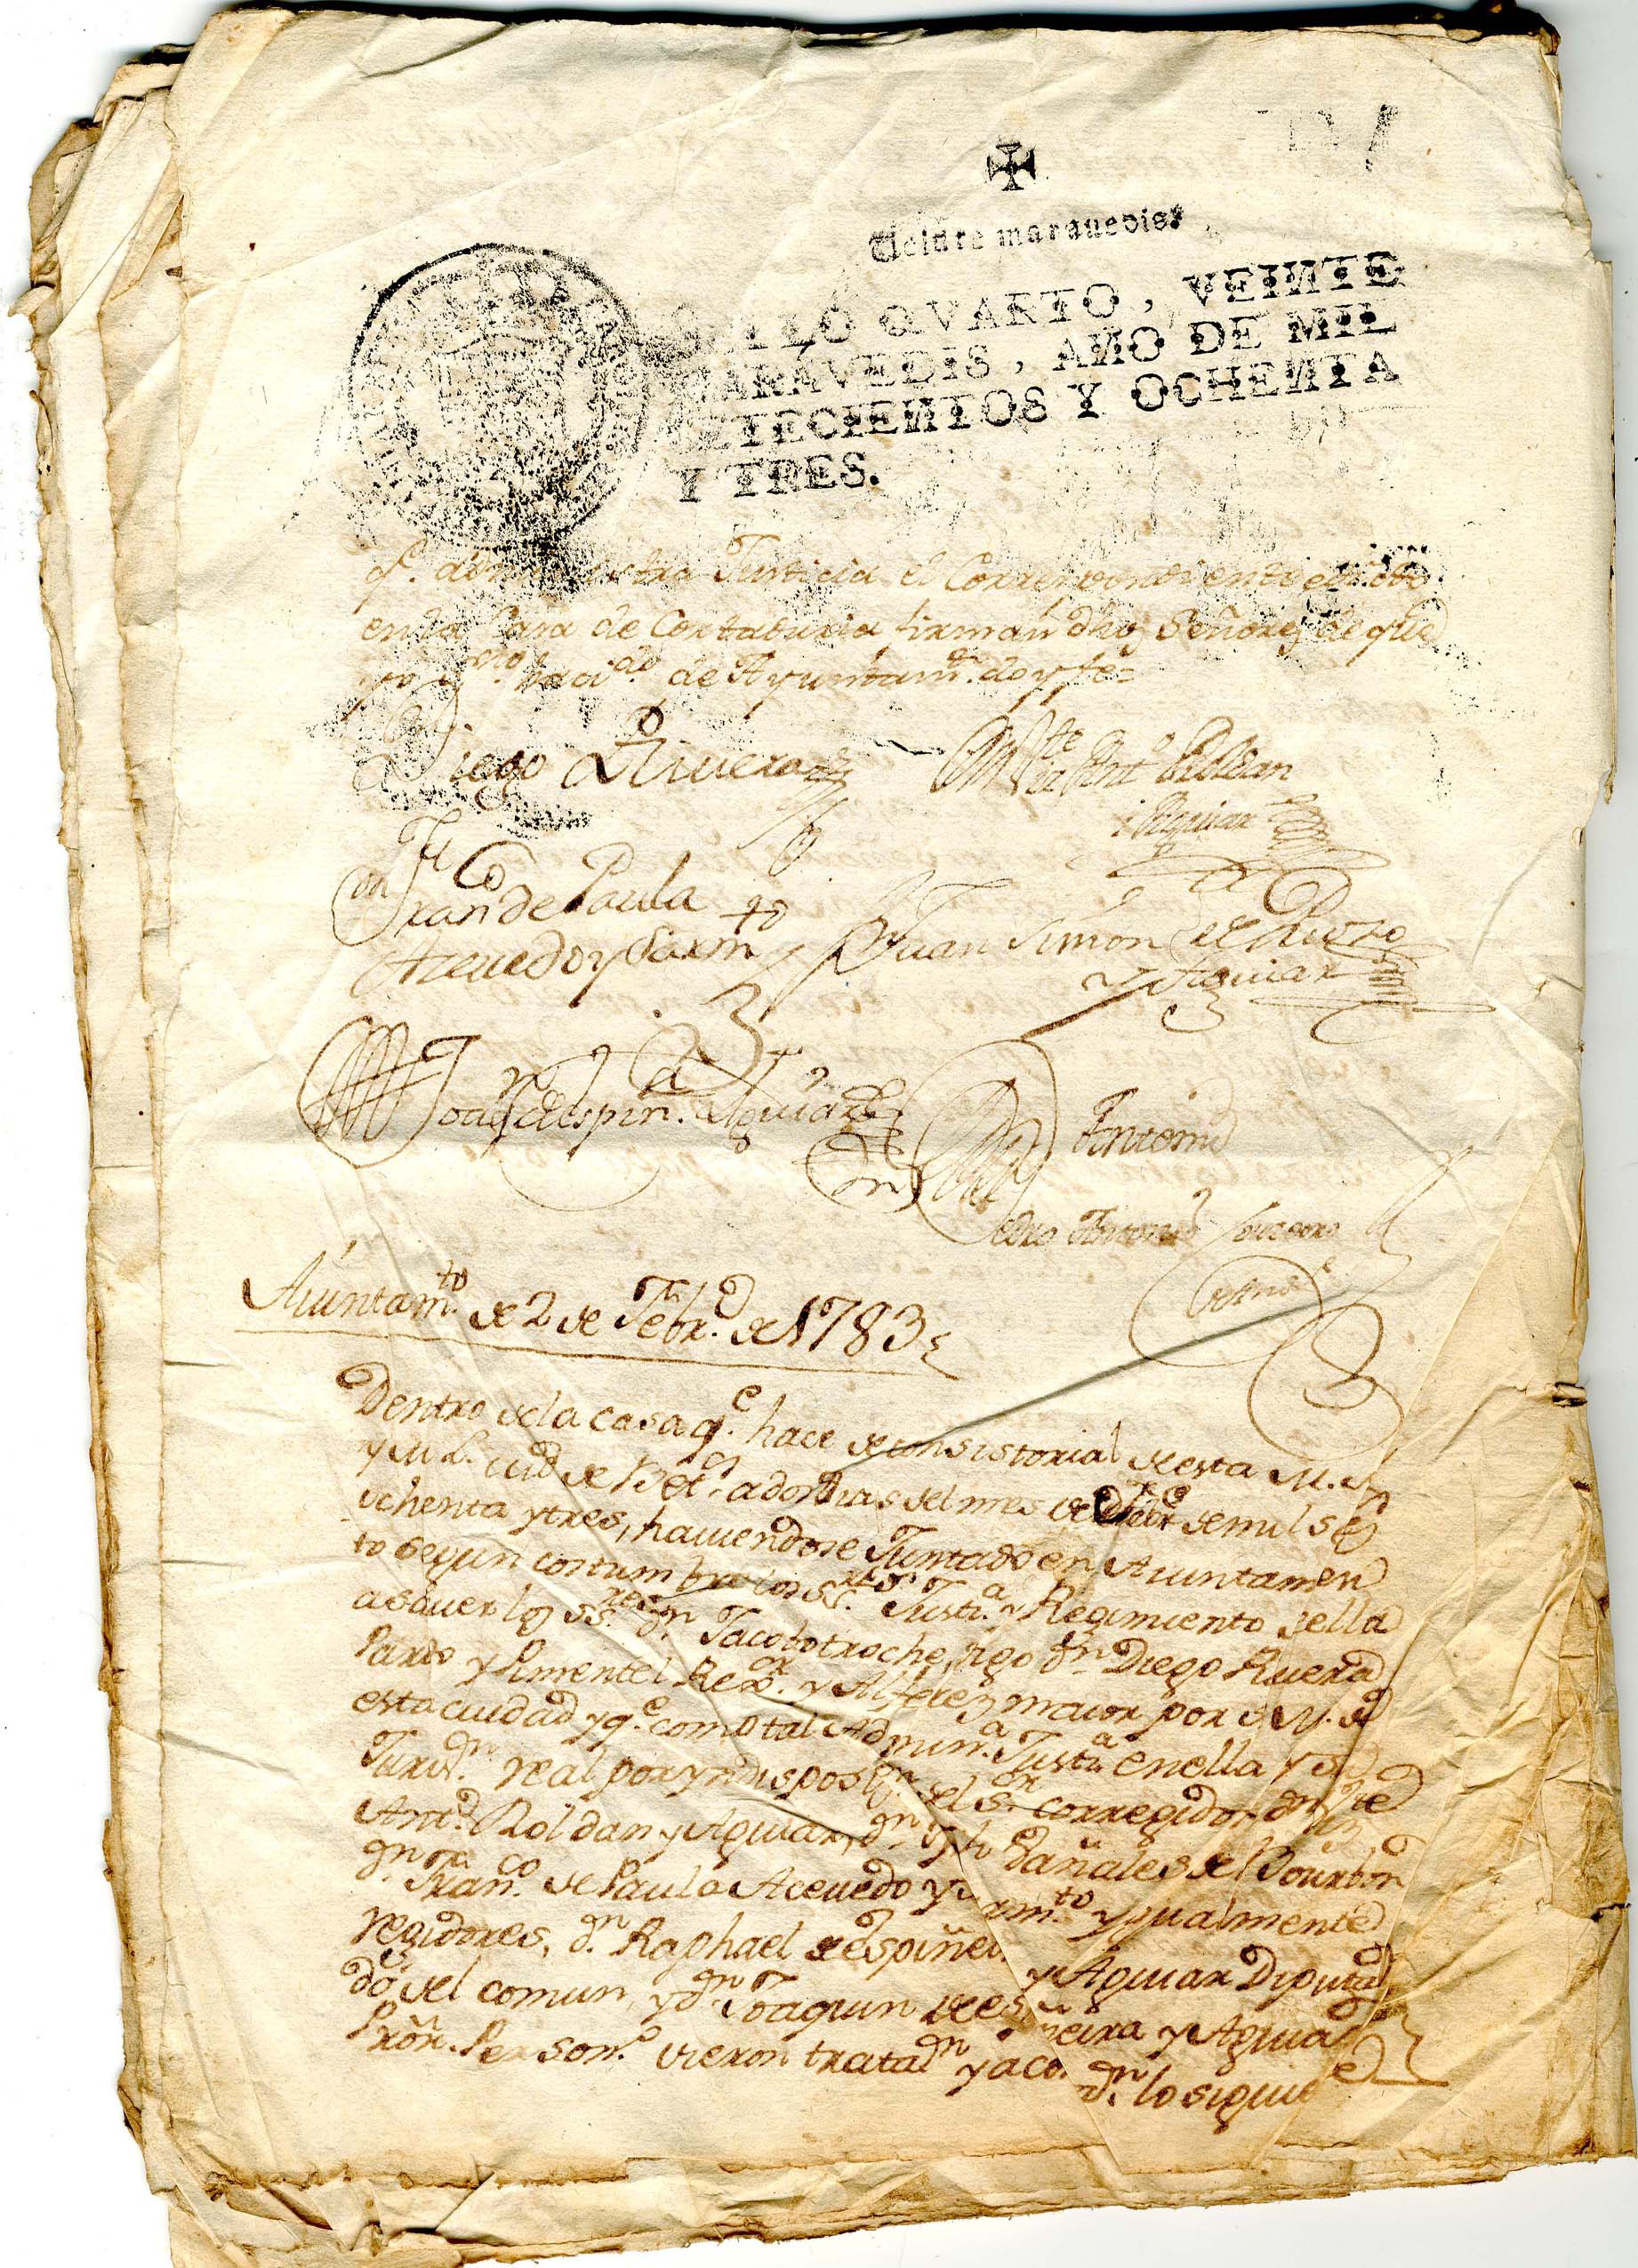 Veinte marauedis.
SELLO QVARTO, VEINTE
MARAVEDIS, AÑO DE MIL
SETECIENTOS Y OCHENTA
Y TRES.
Justicia el Correspondiente
en la Casa de Contaduria firman dhos Señores de que
yo de Ayuntamto. doy fe=
Diego Rivera
Vte Anto Roldan
i Aguiar
Franco de Paula
Acevedo y Sarmto
Juan Simon del Rio
y Aguiar
Joaqn de espinra. Aguiar
Antemi
Pedro Antonio
Aiúntamto. de 2 de Febro. de 1783
Dentro de la casa qe. hace de consistorial de esta M. N.
y M. L. ciud de Bets. a dos dias del mes de Febro de mil
ochenta y tres, haviendose Juntado en Aiuntamien
to segun costumbre los Sres. Justa. y Regimiento della
a saver los SSres. dn Jacobo troche, digo dn Diego Rivera
Pardo y Pimentel Rexor. y Alferez maior por S. M. de
esta ciudad y qe. como tal Adminra. Justa. en ella y su
Jurisdn. real por yndisposn. del Sor. corregidor dn Vte
Anto. Roldan y Aguiar, dn Bañales de Bourbon
dn Franco. de Paula Acevedo y mto. ygualmente
regidores, dn. Raphael de espiñei y Aguiar Diputa
do del comun, y dn Joaquin de es ñeira y Aguia
Prór. Person. vieron tratan y aco dn. lo siguie